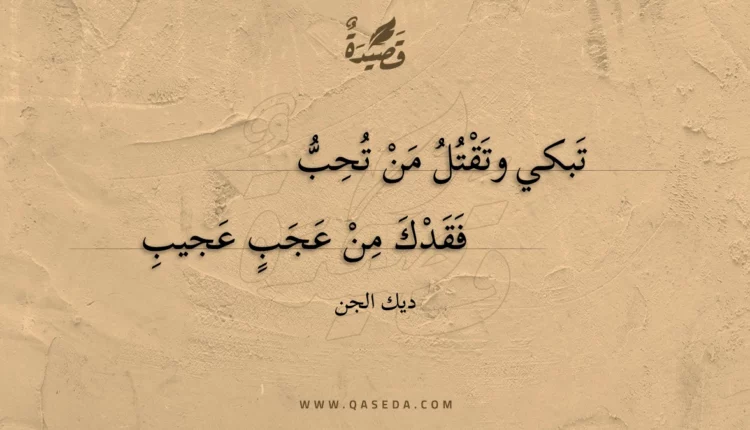 قَصِيْدَةٌ
تَبكي وتَقْتُلُ مَنْ تُحِبُّ
فَقَدْكَ مِنْ عَجَبٍ عَجيبِ
ديك الجن
WWW.QASEDA.COM